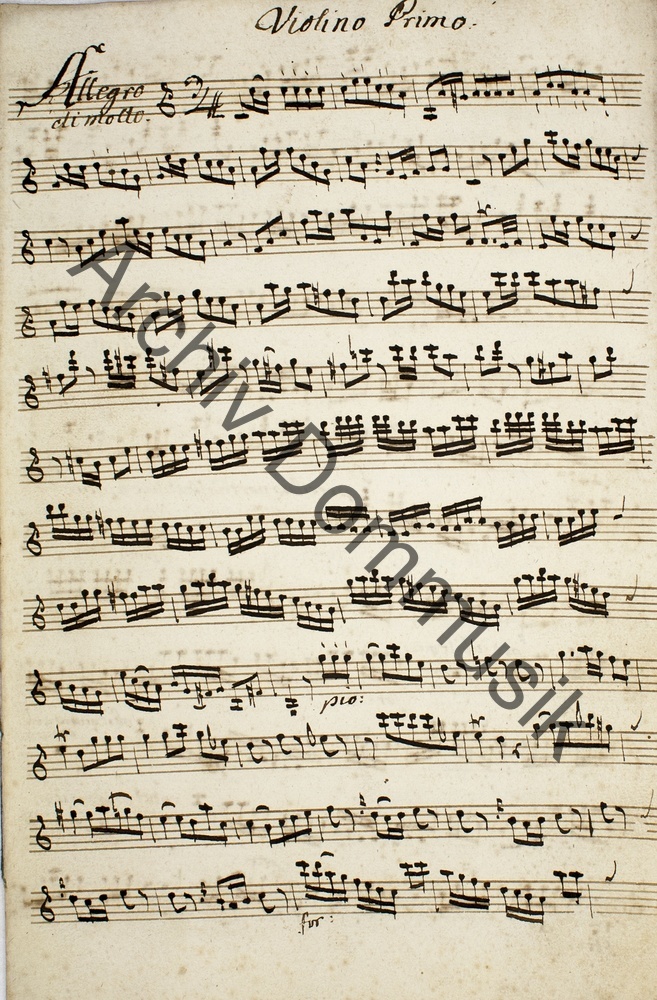 Violino Primo.
Allegro
di molto.
2/4
Archiv Dommusik
pio:
for: